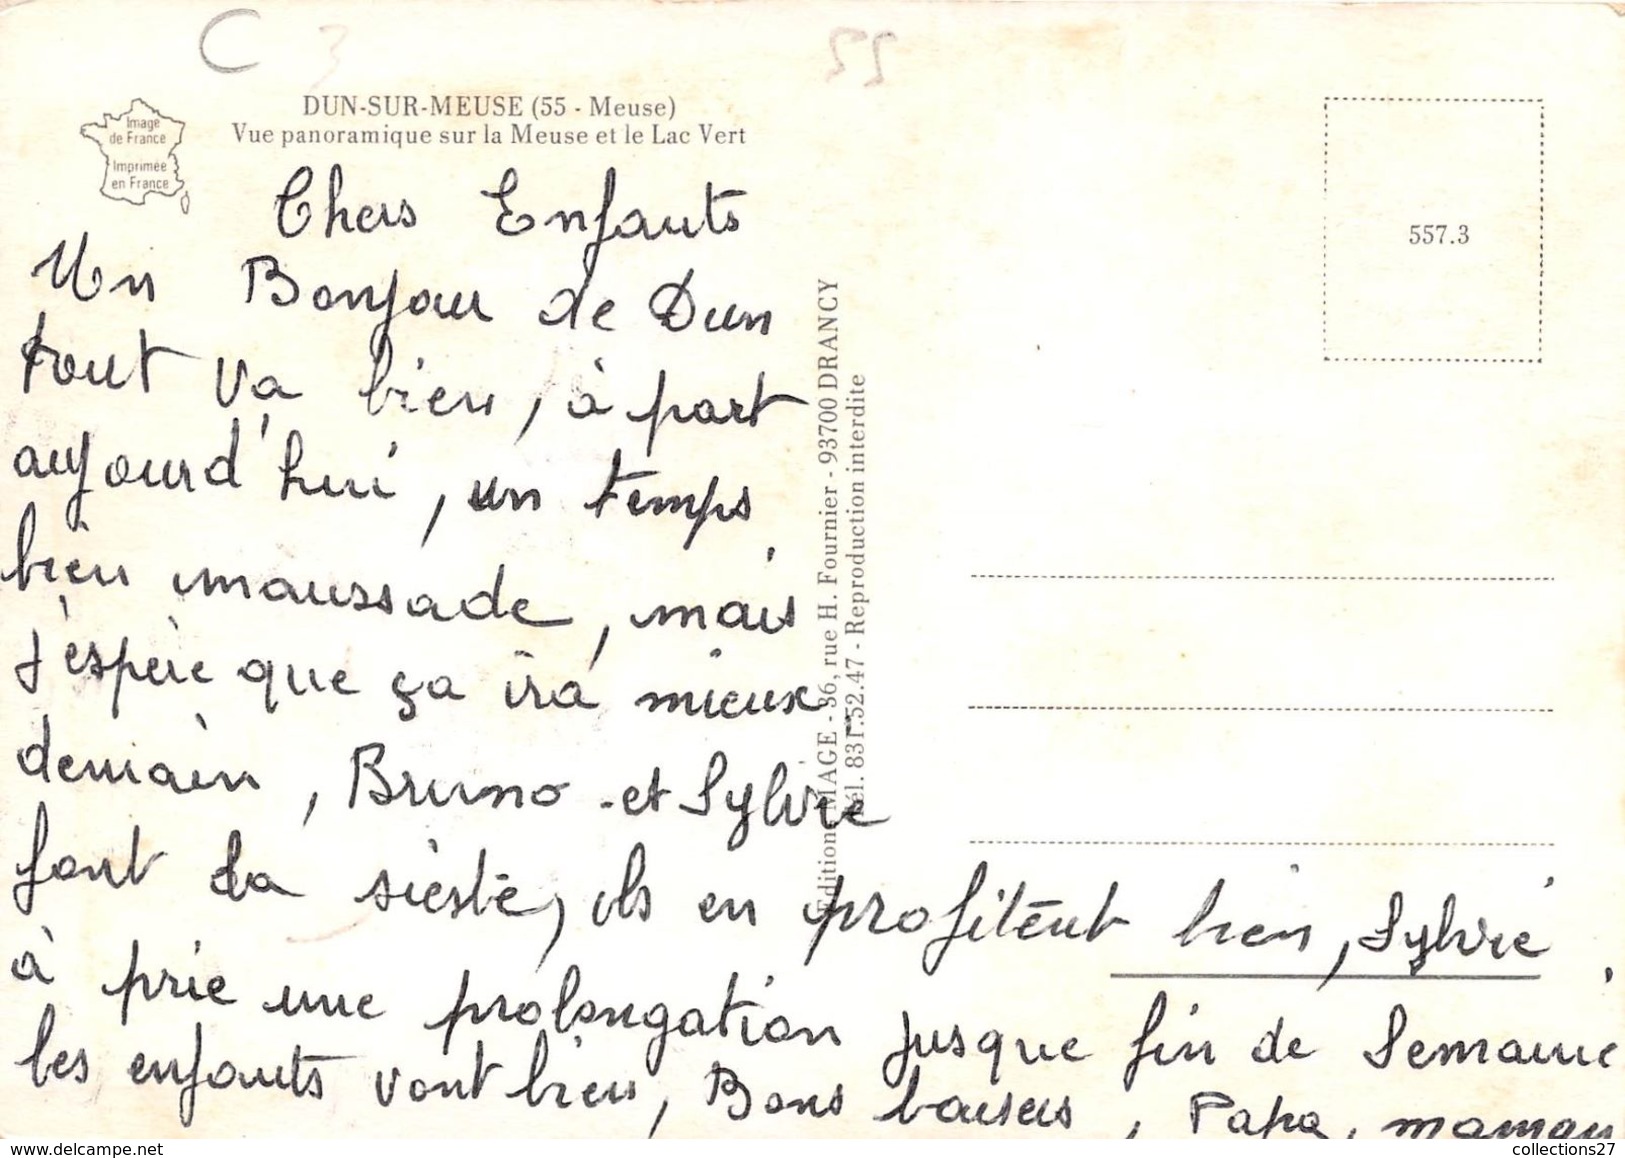 C 3
55
DUN-SUR-MEUSE (55 - Meuse)
Vue panoramique sur la Meuse et le Lac Vert
Image
de France
Imprimée
en France
557.3
Chers Enfants
Un Bonjour de Dun
tout va bien, à part
aujourd'hui, un temps
bien maussade, mais
j'espère que ça ira mieux
demain, Bruno et Sylvie
font la sieste, ils en profitent bien, Sylvie
à prie une prolongation jusque fin de Semaine,
les enfants vont bien, Bons baisers, Papa, maman
Editions MAGE - 36, rue H. Fournier - 93700 DRANCY
Tél. 831.52.47 - Reproduction interdite
delcampe.net
collections27